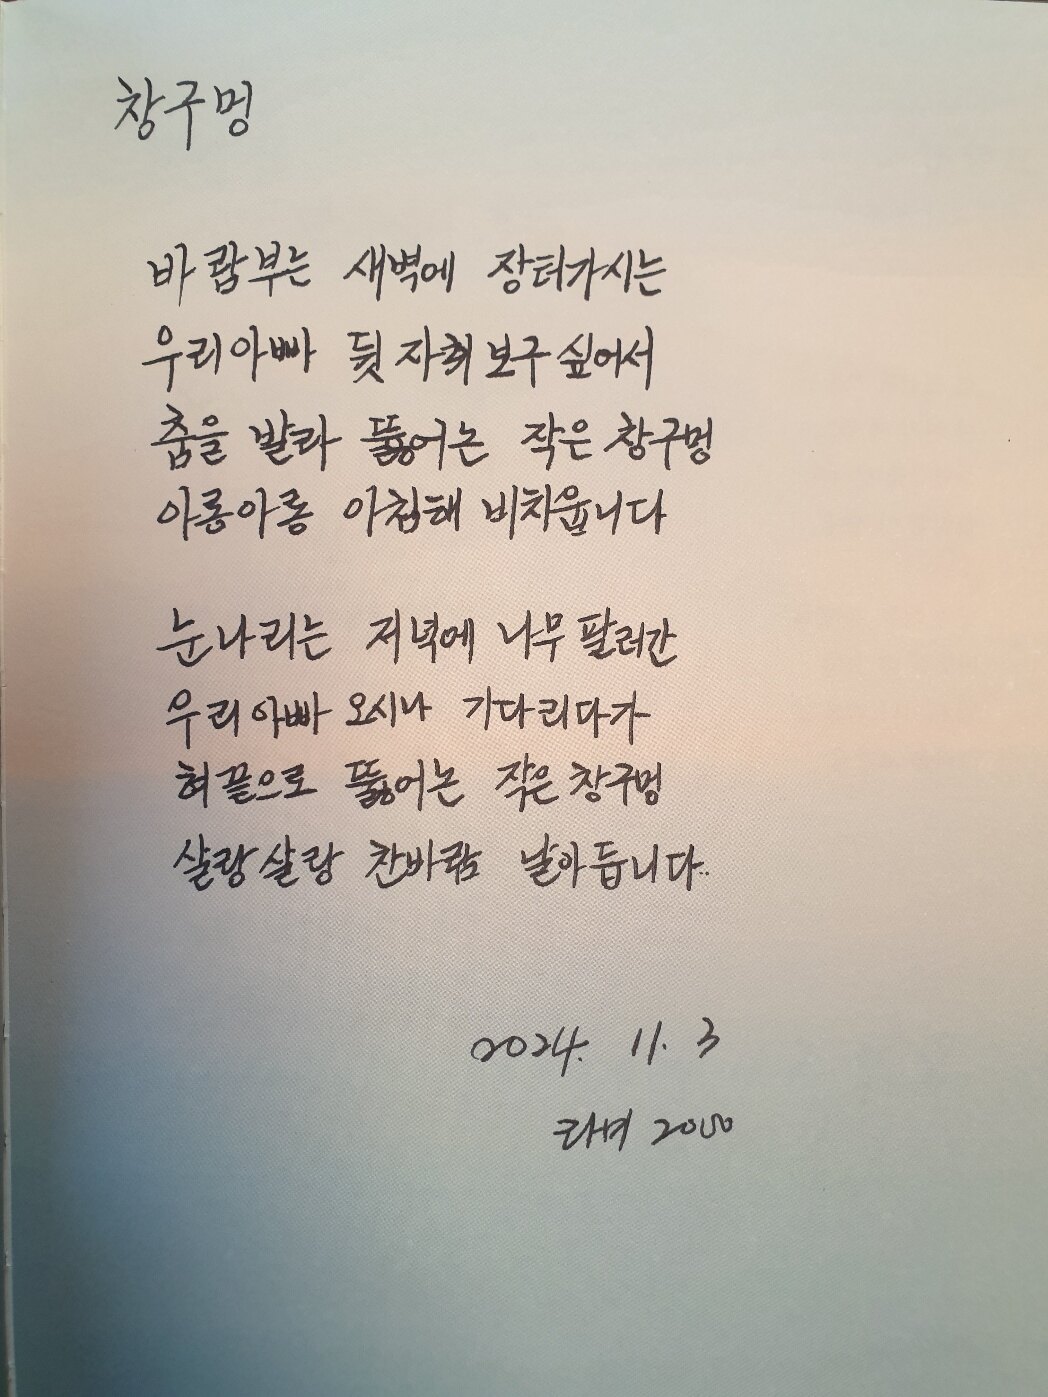 창구멍
바람부는 새벽에 장터가시는
우리아빠 뒷자취 보구싶어서
춤을 발라 뚫어논 작은 창구멍
아롱아롱 아침해 비치웁니다
눈나리는 저녁에 나무팔러간
우리아빠 오시나 기다리다가
혀끝으로 뚫어논 작은 창구멍
살랑살랑 찬바람 날아듭니다..
2024. 11. 3